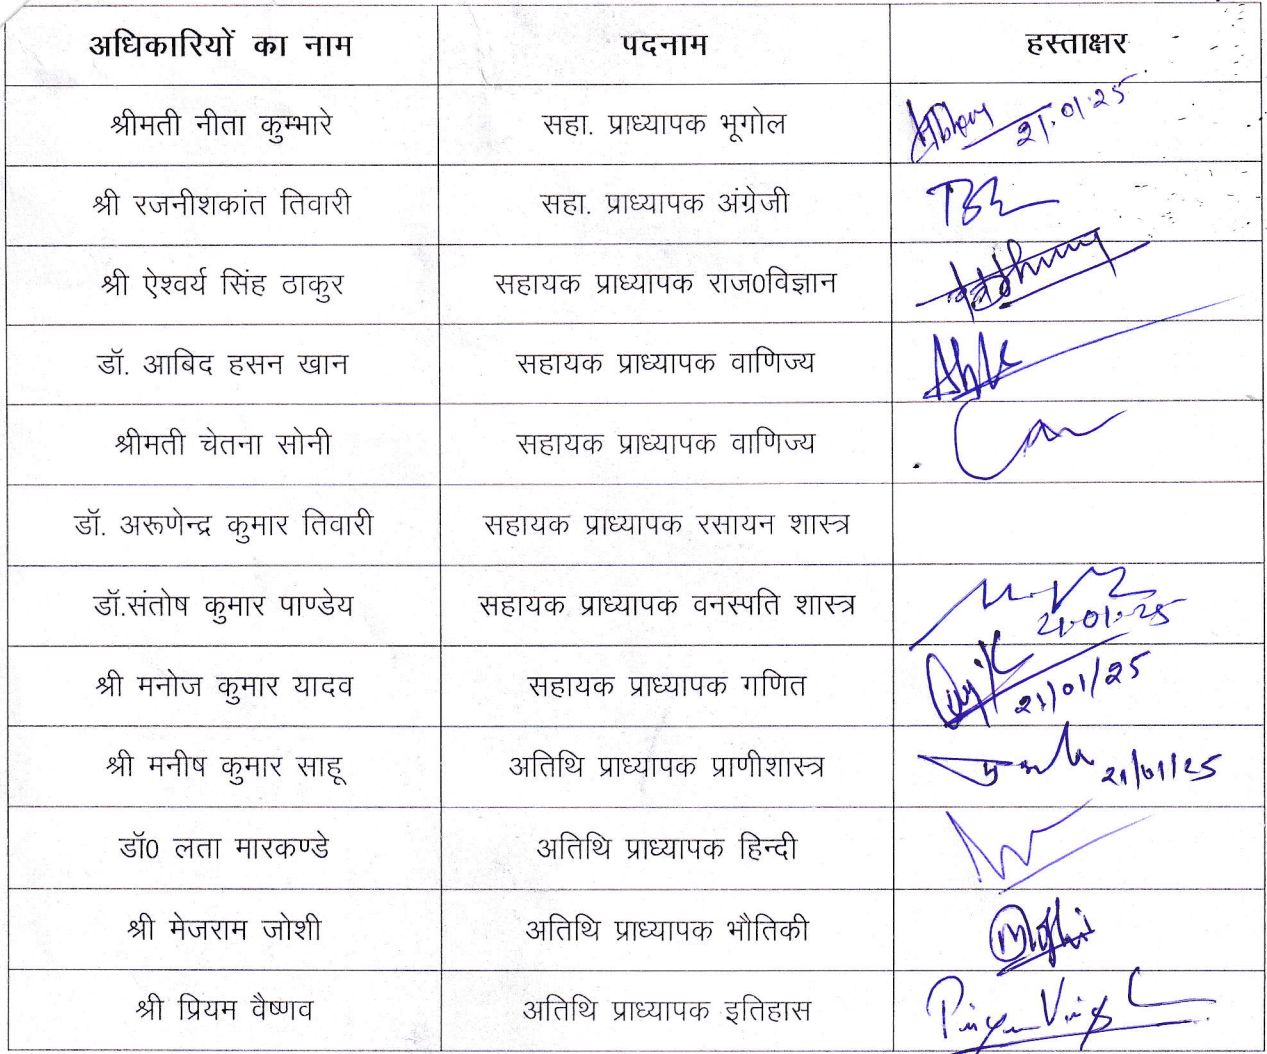 अधिकारियों का नाम पदनाम हस्ताक्षर
श्रीमती नीता कुम्भारे सहा. प्राध्यापक भूगोल 21.01.25
श्री रजनीशकांत तिवारी सहा. प्राध्यापक अंग्रेजी
श्री ऐश्वर्य सिंह ठाकुर सहायक प्राध्यापक राज0विज्ञान
डॉ. आबिद हसन खान सहायक प्राध्यापक वाणिज्य
श्रीमती चेतना सोनी सहायक प्राध्यापक वाणिज्य
डॉ. अरूणेन्द्र कुमार तिवारी सहायक प्राध्यापक रसायन शास्त्र
डॉ.संतोष कुमार पाण्डेय सहायक प्राध्यापक वनस्पति शास्त्र 21.01.25
श्री मनोज कुमार यादव सहायक प्राध्यापक गणित 21/01/25
श्री मनीष कुमार साहू अतिथि प्राध्यापक प्राणीशास्त्र 21/01/25
डॉ0 लता मारकण्डे अतिथि प्राध्यापक हिन्दी
श्री मेजराम जोशी अतिथि प्राध्यापक भौतिकी
श्री प्रियम वैष्णव अतिथि प्राध्यापक इतिहास